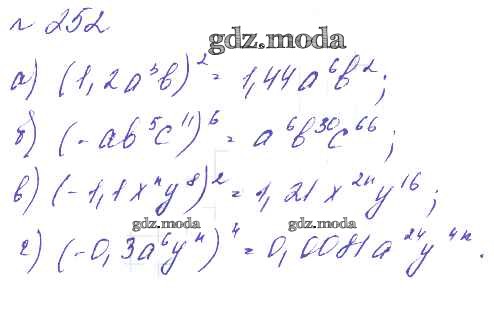 № 252
gdz.moda
а) (1,2a³b)² = 1,44a⁶b²;
б) (-ab⁵c¹¹)⁶ = a⁶b³⁰c⁶⁶;
в) (-1,1xⁿy⁸)² = 1,21x²ⁿy¹⁶;
gdz.moda gdz.moda
г) (-0,3a⁶yⁿ)⁴ = 0,0081a²⁴y⁴ⁿ.